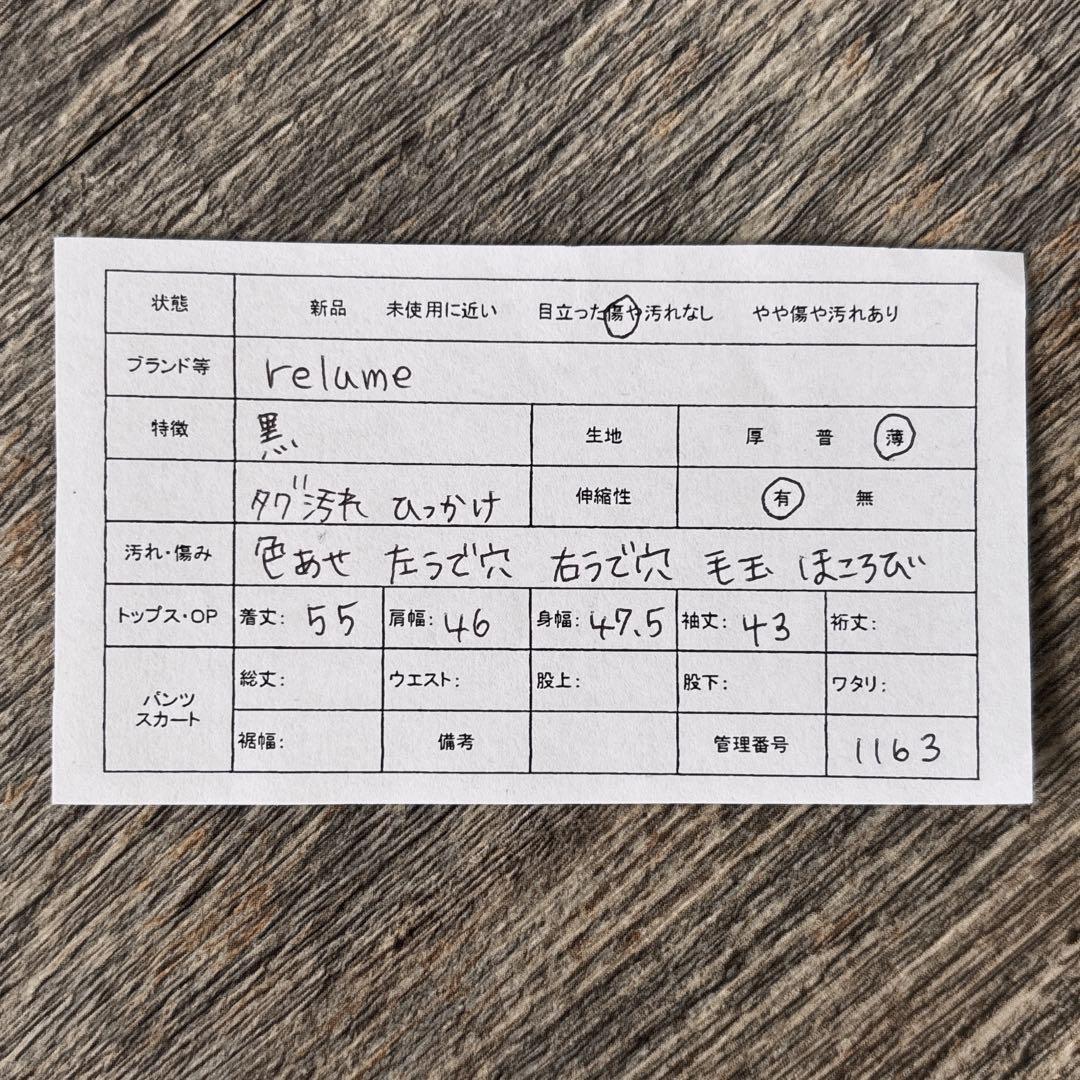 状態 新品 未使用に近い 目立った傷や汚れなし やや傷や汚れあり
ブランド等 relume
特徴 黒 生地 厚 普 薄
タグ汚れ ひっかけ 伸縮性 有 無
汚れ・傷み 色あせ 左うで穴 右うで穴 毛玉 ほころび
トップス・OP 着丈: 55 肩幅: 46 身幅: 47.5 袖丈: 43 裄丈:
パンツ スカート 総丈: ウエスト: 股上: 股下: ワタリ:
裾幅: 備考 管理番号 1163